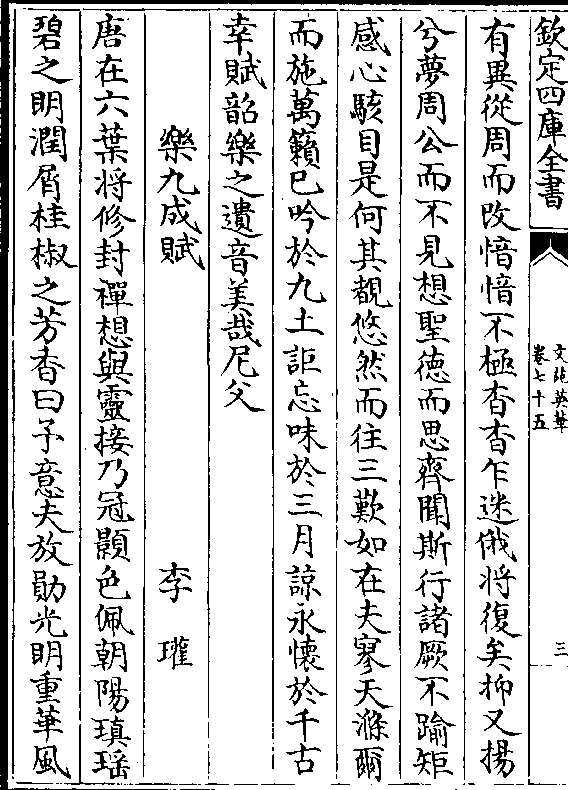 欽定四庫全書
文苑英華
卷七十五
三
有異從周而改愔愔不極杳杳乍迷俄将復矣抑又揚
兮夢周公而不見想聖徳而思齊聞斯行諸厥不踰矩
感心駭目是何其覩悠然而往三歎如在夫寥天滌爾
而施萬籟已吟於九土詎忘味於三月諒永懷於千古
幸賦韶樂之遺音美哉尼父
樂九成賦 李瓘
唐在六葉将修封禪想與靈接乃冠顥色佩朝陽瑱瑶
碧之明潤屑桂椒之芳杳曰予意夫放勛光明重華風